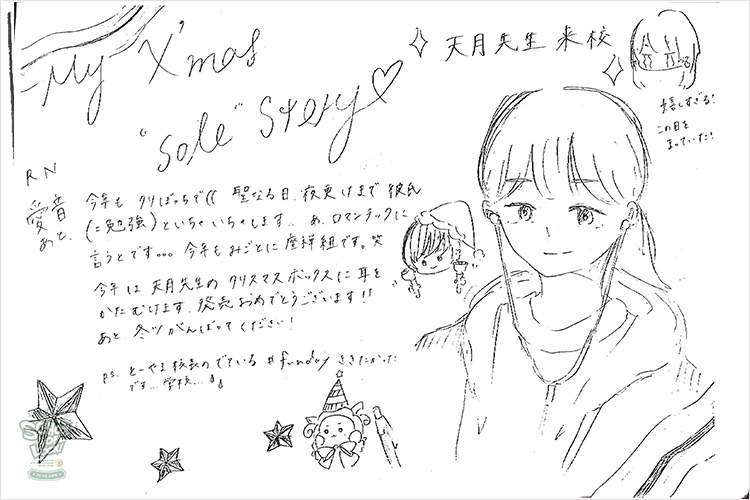 My X'mas
"Sole" Story♡
天月先生来校
嬉しすぎる!
この日を
まっていた!
RN
愛音
あと、
今年も クリぼっちで(( 聖なる日、夜更けまで彼氏
(=勉強)といちゃいちゃします.. あ、ロマンチックに
言うとです。。。 今年もみごとに座禅組です。笑
今年は 天月先生の クリスマスボックスに 耳を
かたむけます. 発売おめでとうございます!!
あと 冬ツ がんばってください!
P.S. とーやま校長のでている #funday ききたかった
です... 学校...